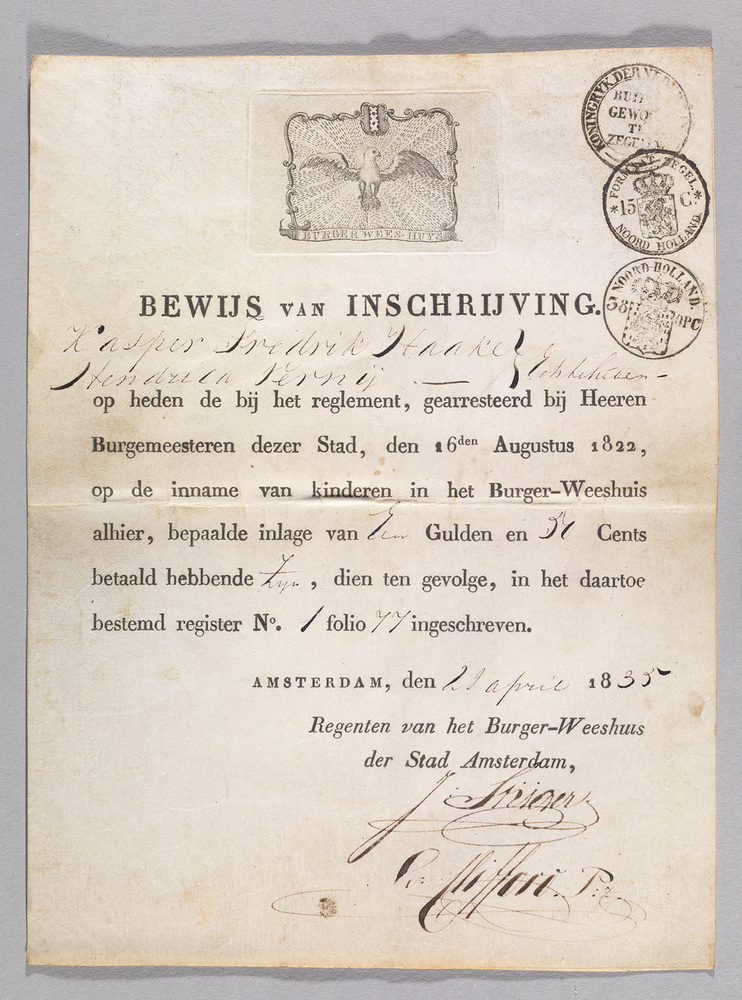 BURGER WEES-HUYS
KONINGRYK DER NEDER
BUI
GEWO
TE
ZEGELEN.
* FORMAAT ZEGEL. *
15 C.
NOORD HOLLAND.
NOORD-HOLLAND.
38 OPC
BEWIJS VAN INSCHRIJVING.
Kasper Fredrik Haake
Hendrica Pernij — Echtelieden —
op heden de bij het reglement, gearresteerd bij Heeren
Burgemeesteren dezer Stad, den 16den Augustus 1822,
op de inname van kinderen in het Burger-Weeshuis
alhier, bepaalde inlage van Een Gulden en 50 Cents
betaald hebbende Zyn, dien ten gevolge, in het daartoe
bestemd register No. 1 folio 77 ingeschreven.
AMSTERDAM, den 21 april 1835
Regenten van het Burger-Weeshuis
der Stad Amsterdam,